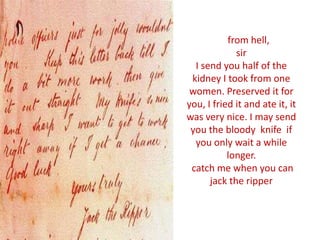 police officers just for jolly wouldnt
you. Keep this letter back till I
do a bit more work. then give
it out straight My knife's so nice
and sharp I want to get to work
right away if I get a chance.
Good luck.
Yours truly
Jack the Ripper
from hell,
sir
I send you half of the
kidney I took from one
women. Preserved it for
you, I fried it and ate it, it
was very nice. I may send
you the bloody knife if
you only wait a while
longer.
catch me when you can
jack the ripper